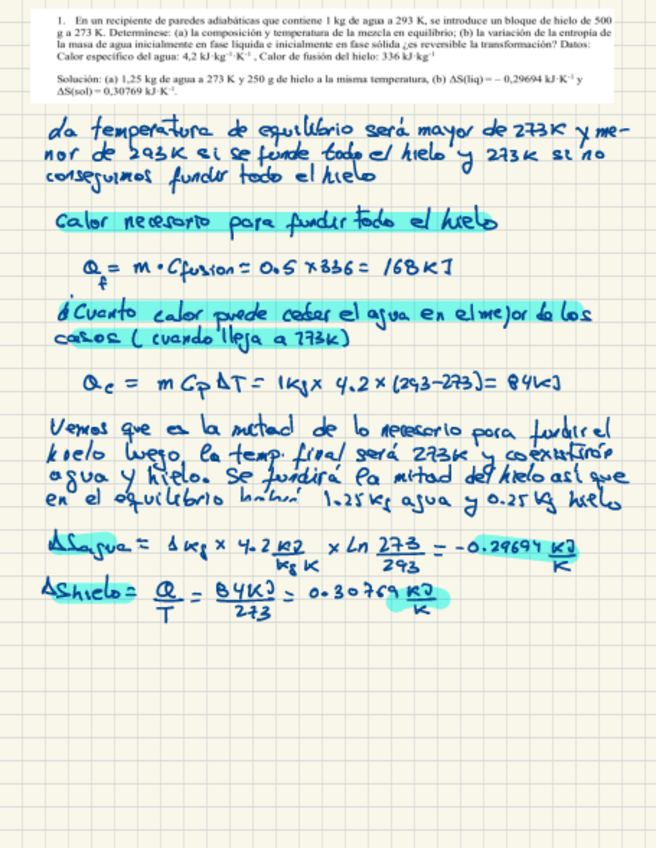 1. En un recipiente de paredes adiabáticas que contiene 1 kg de agua a 293 K, se introduce un bloque de hielo de 500
g a 273 K. Determínese: (a) la composición y temperatura de la mezcla en equilibrio; (b) la variación de la entropía de
la masa de agua inicialmente en fase líquida e inicialmente en fase sólida ¿es reversible la transformación? Datos:
Calor específico del agua: 4,2 kJ·kg⁻¹·K⁻¹ , Calor de fusión del hielo: 336 kJ·kg⁻¹
Solución: (a) 1,25 kg de agua a 273 K y 250 g de hielo a la misma temperatura, (b) ΔS(liq) = – 0,29694 kJ·K⁻¹ y
ΔS(sol) = 0,30769 kJ·K⁻¹.
La temperatura de equilibrio será mayor de 273K y me-
nor de 293K si se funde todo el hielo y 273K si no
conseguimos fundir todo el hielo
Calor necesario para fundir todo el hielo
Qf = m · Cfusion = 0.5 x 336 = 168 KJ
¿Cuanto calor puede ceder el agua en el mejor de los
casos (cuando llega a 273K)
Qc = m Cp ΔT = 1Kg x 4.2 x (293-273) = 84KJ
Vemos que es la mitad de lo necesario para fundir el
hielo luego la temp. final será 273K y coexistirán
agua y hielo. Se fundirá la mitad del hielo así que
en el equilibrio habrá 1.25 Kg agua y 0.25 Kg hielo
ΔSagua = 1 Kg x 4.2 KJ/Kg K x Ln 273/293 = -0.29694 KJ/K
ΔShielo = Q/T = 84KJ/273 = 0.30769 KJ/K